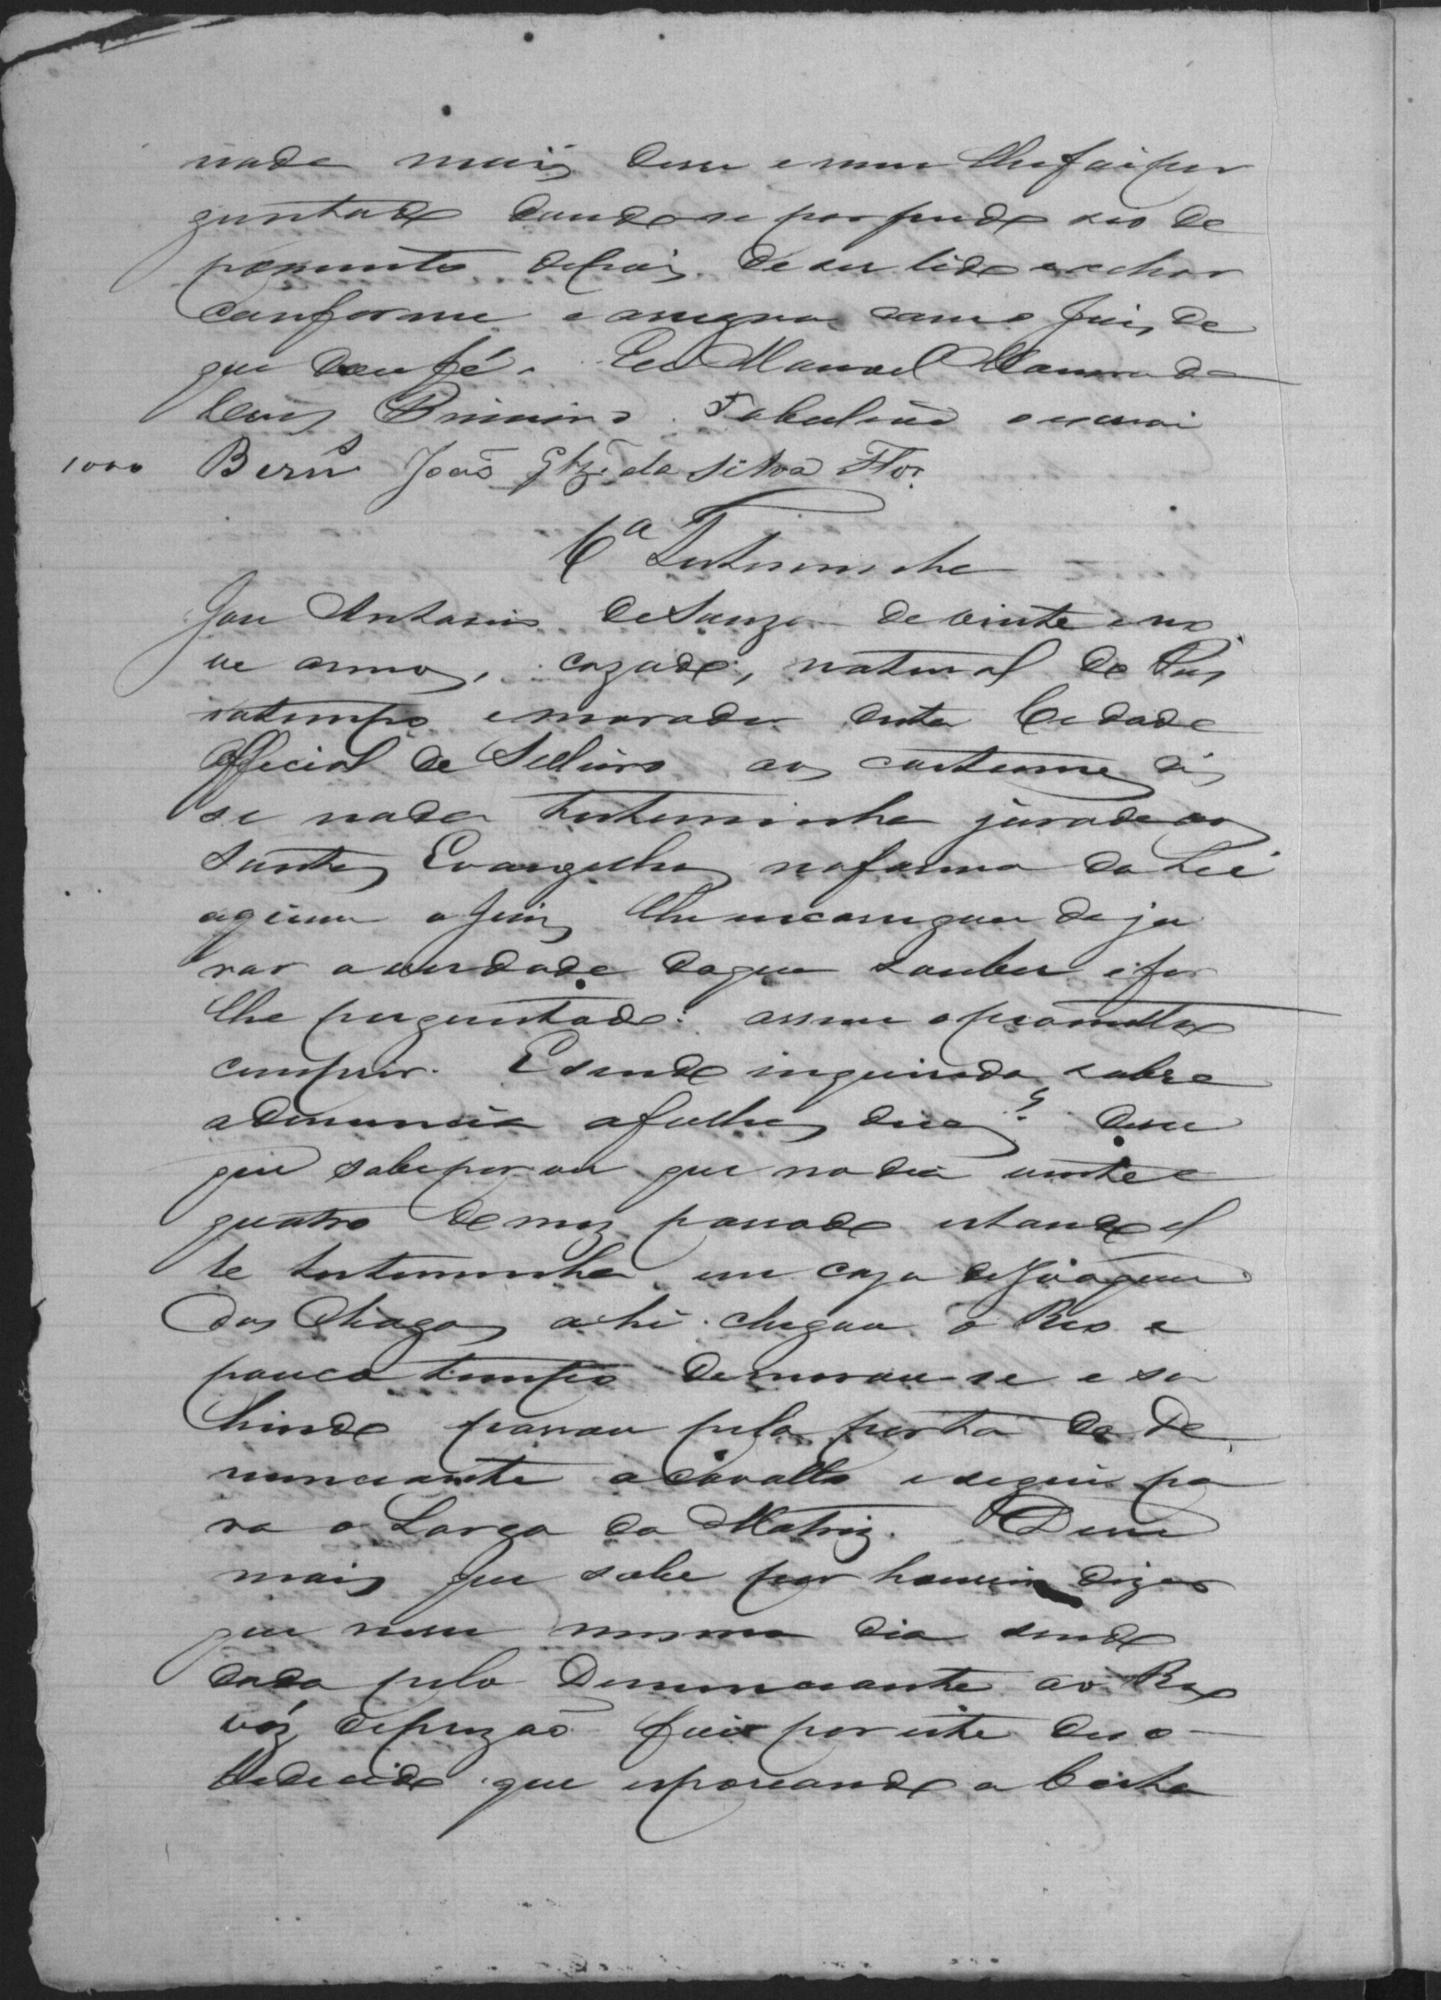 nada mais disse e nem lhe foi per
guntado dando-se por findo seo de
poimento depois de ser lido e achar
conforme e assigna com o Juis de
que dou fé. Eu Manoel
Primeiro Tabelião escrevi
1000 Bern João da Silva Flor.
6ª Testeminha
José Antonio de Souza de vinte e no
ve annos, cazado, natural de
e morador nesta Cidade
Official de Selleiro aos custumes dis
se nada testeminha jurado aos
Santos Evangelhos na forma da Lei
a quem o Juis lhe encarregou de ju
rar a verdade do que souber e for
lhe perguntado: assim o prometteo
cumprir. E sendo inquirida sobre
a denuncia a folhas duas disse
que sabe por ver que no dia vinte e
quatro do mez passado estando el
le testeminha em caza de Joaquim
das Chagas ahi chegou o Reo e
pouco tempo demorou-se e sa
hindo passou pela porta do De
nunciante a cavallo e seguio pa
ra o Largo da Matriz. Disse
mais que sabe por houvir dizer
que nesse mesmo dia sendo
dada pelo Denunciante ao Reo
vóz de prizão foi por este deso
bedecido que esporeando a besta